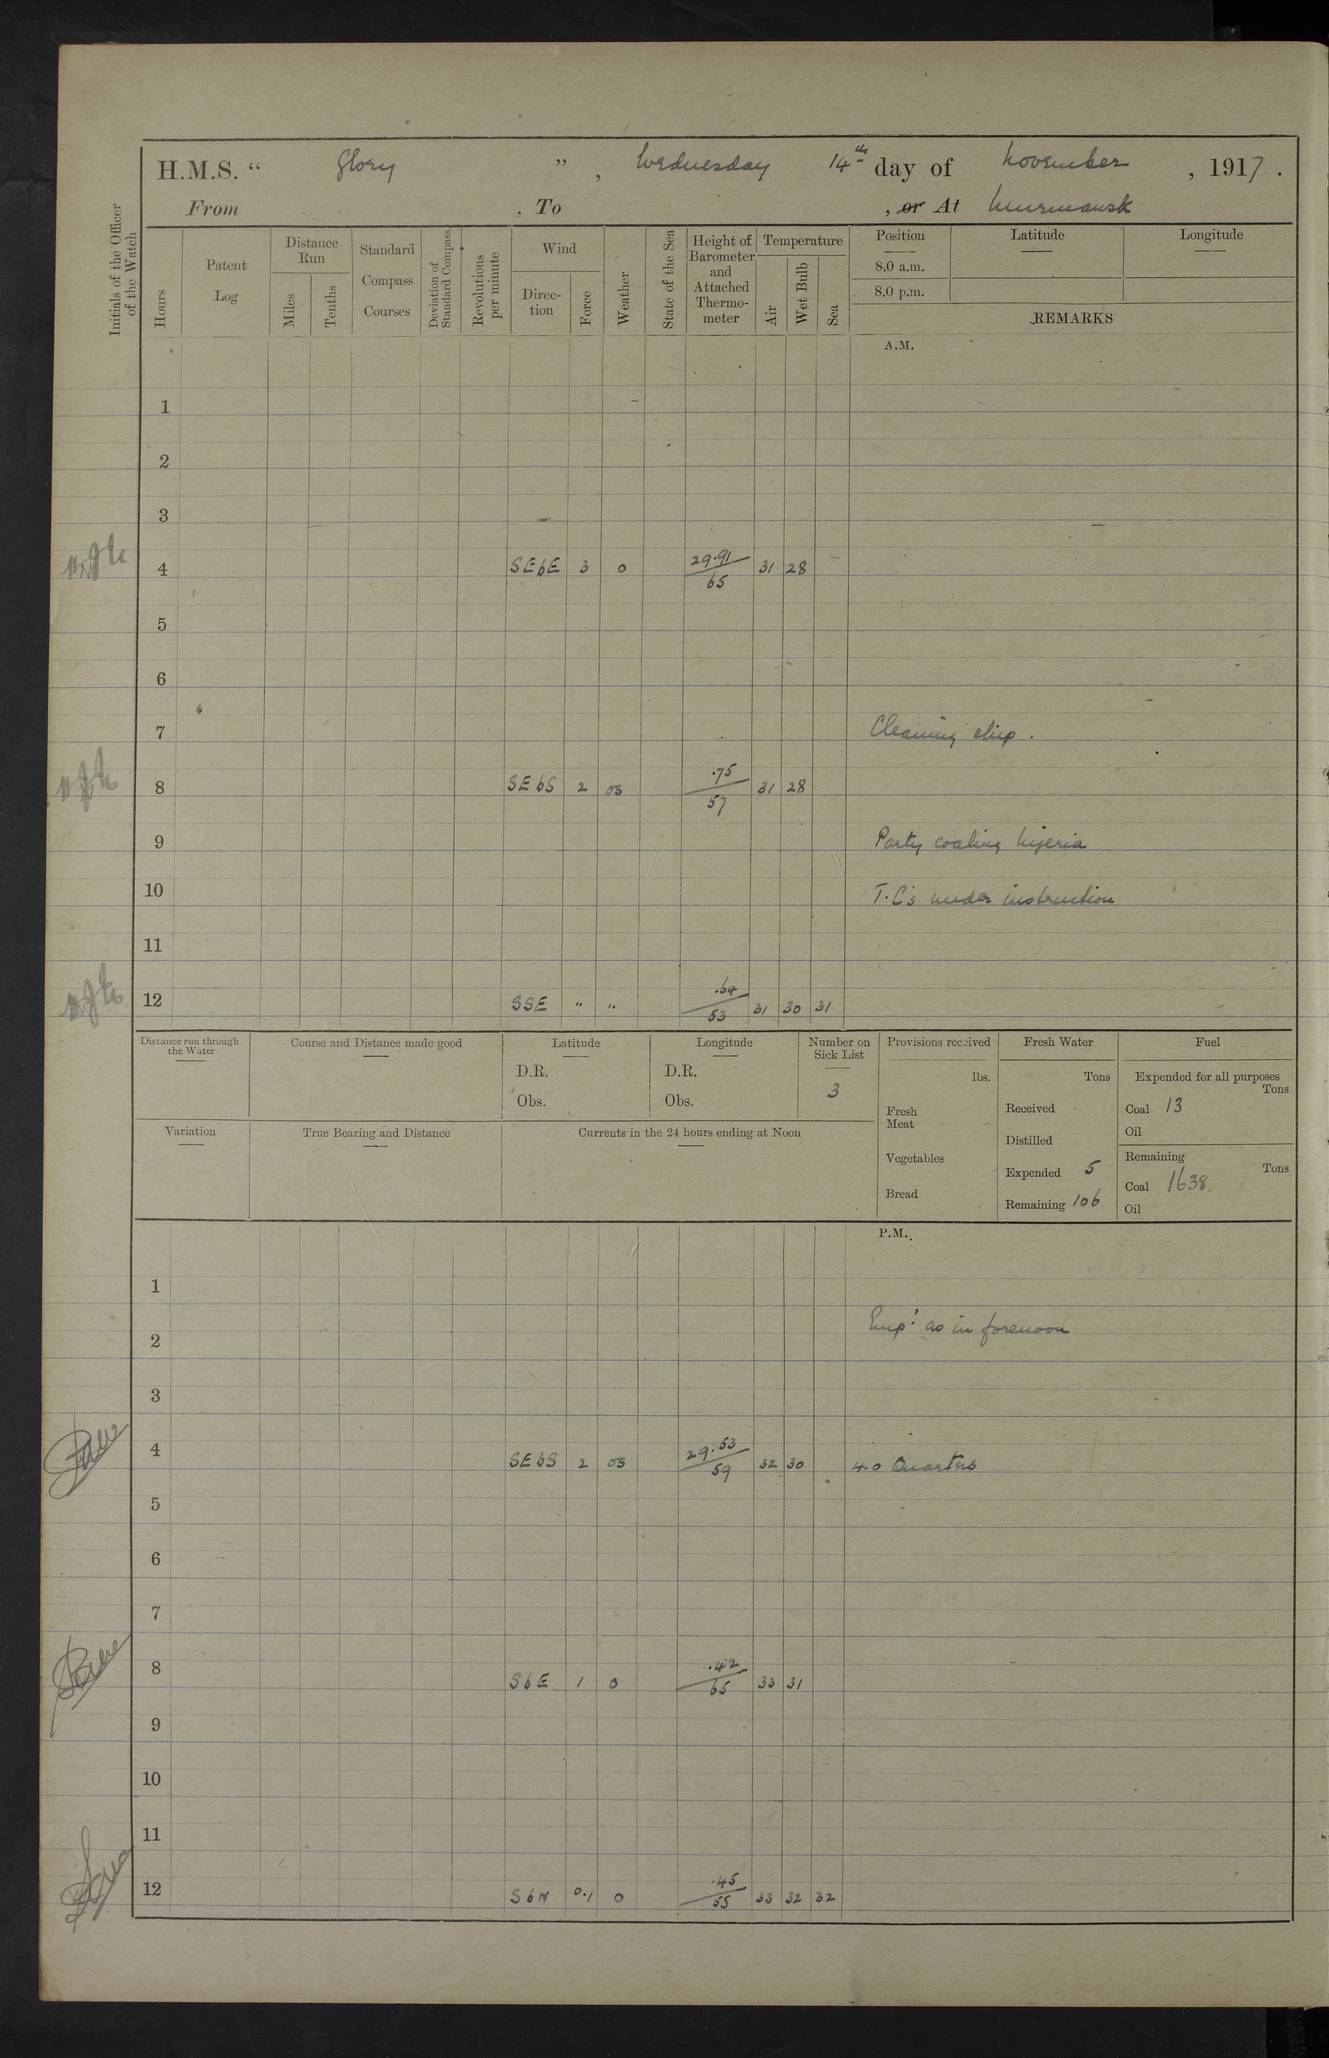 H.M.S. “ Glory ” , Wednesday 14th day of November , 1917 .
From , To , or At Murmansk
Initials of the Officer of the Watch
Hours
Patent Log
Distance Run
Miles
Tenths
Standard Compass Courses
Deviation of Standard Compass
Revolutions per minute
Wind
Direc-tion
Force
Weather
State of the Sea
Height of Barometer and Attached Thermo-meter
Temperature
Air
Wet Bulb
Sea
Position
Latitude
Longitude
8.0 a.m.
8.0 p.m.
REMARKS
A.M.
1
2
3
4 SEbE 3 o 29.91/65 31 28
5
6
7 Cleaning ship .
8 SEbS 2 os .75/57 31 28
9 Party coaling Nigeria
10 T.C's under instruction
11
12 SSE " " .64/53 31 30 31
Distance run through the Water
Course and Distance made good
Latitude
D.R.
Obs.
Longitude
D.R.
Obs.
Number on Sick List
3
Provisions received
lbs.
Fresh Meat
Vegetables
Bread
Fresh Water
Tons
Received
Distilled
Expended 5
Remaining 106
Fuel
Expended for all purposes
Tons
Coal 13
Oil
Remaining
Tons
Coal 1638
Oil
Variation
True Bearing and Distance
Currents in the 24 hours ending at Noon
P.M.
1
2 Emp: as in forenoon
3
4 SEbS 2 os 29.53/59 32 30 4.0 Quarters
5
6
7
8 SbE 1 o .42/65 33 31
9
10
11
12 SbW 0.1 o .45/55 33 32 32